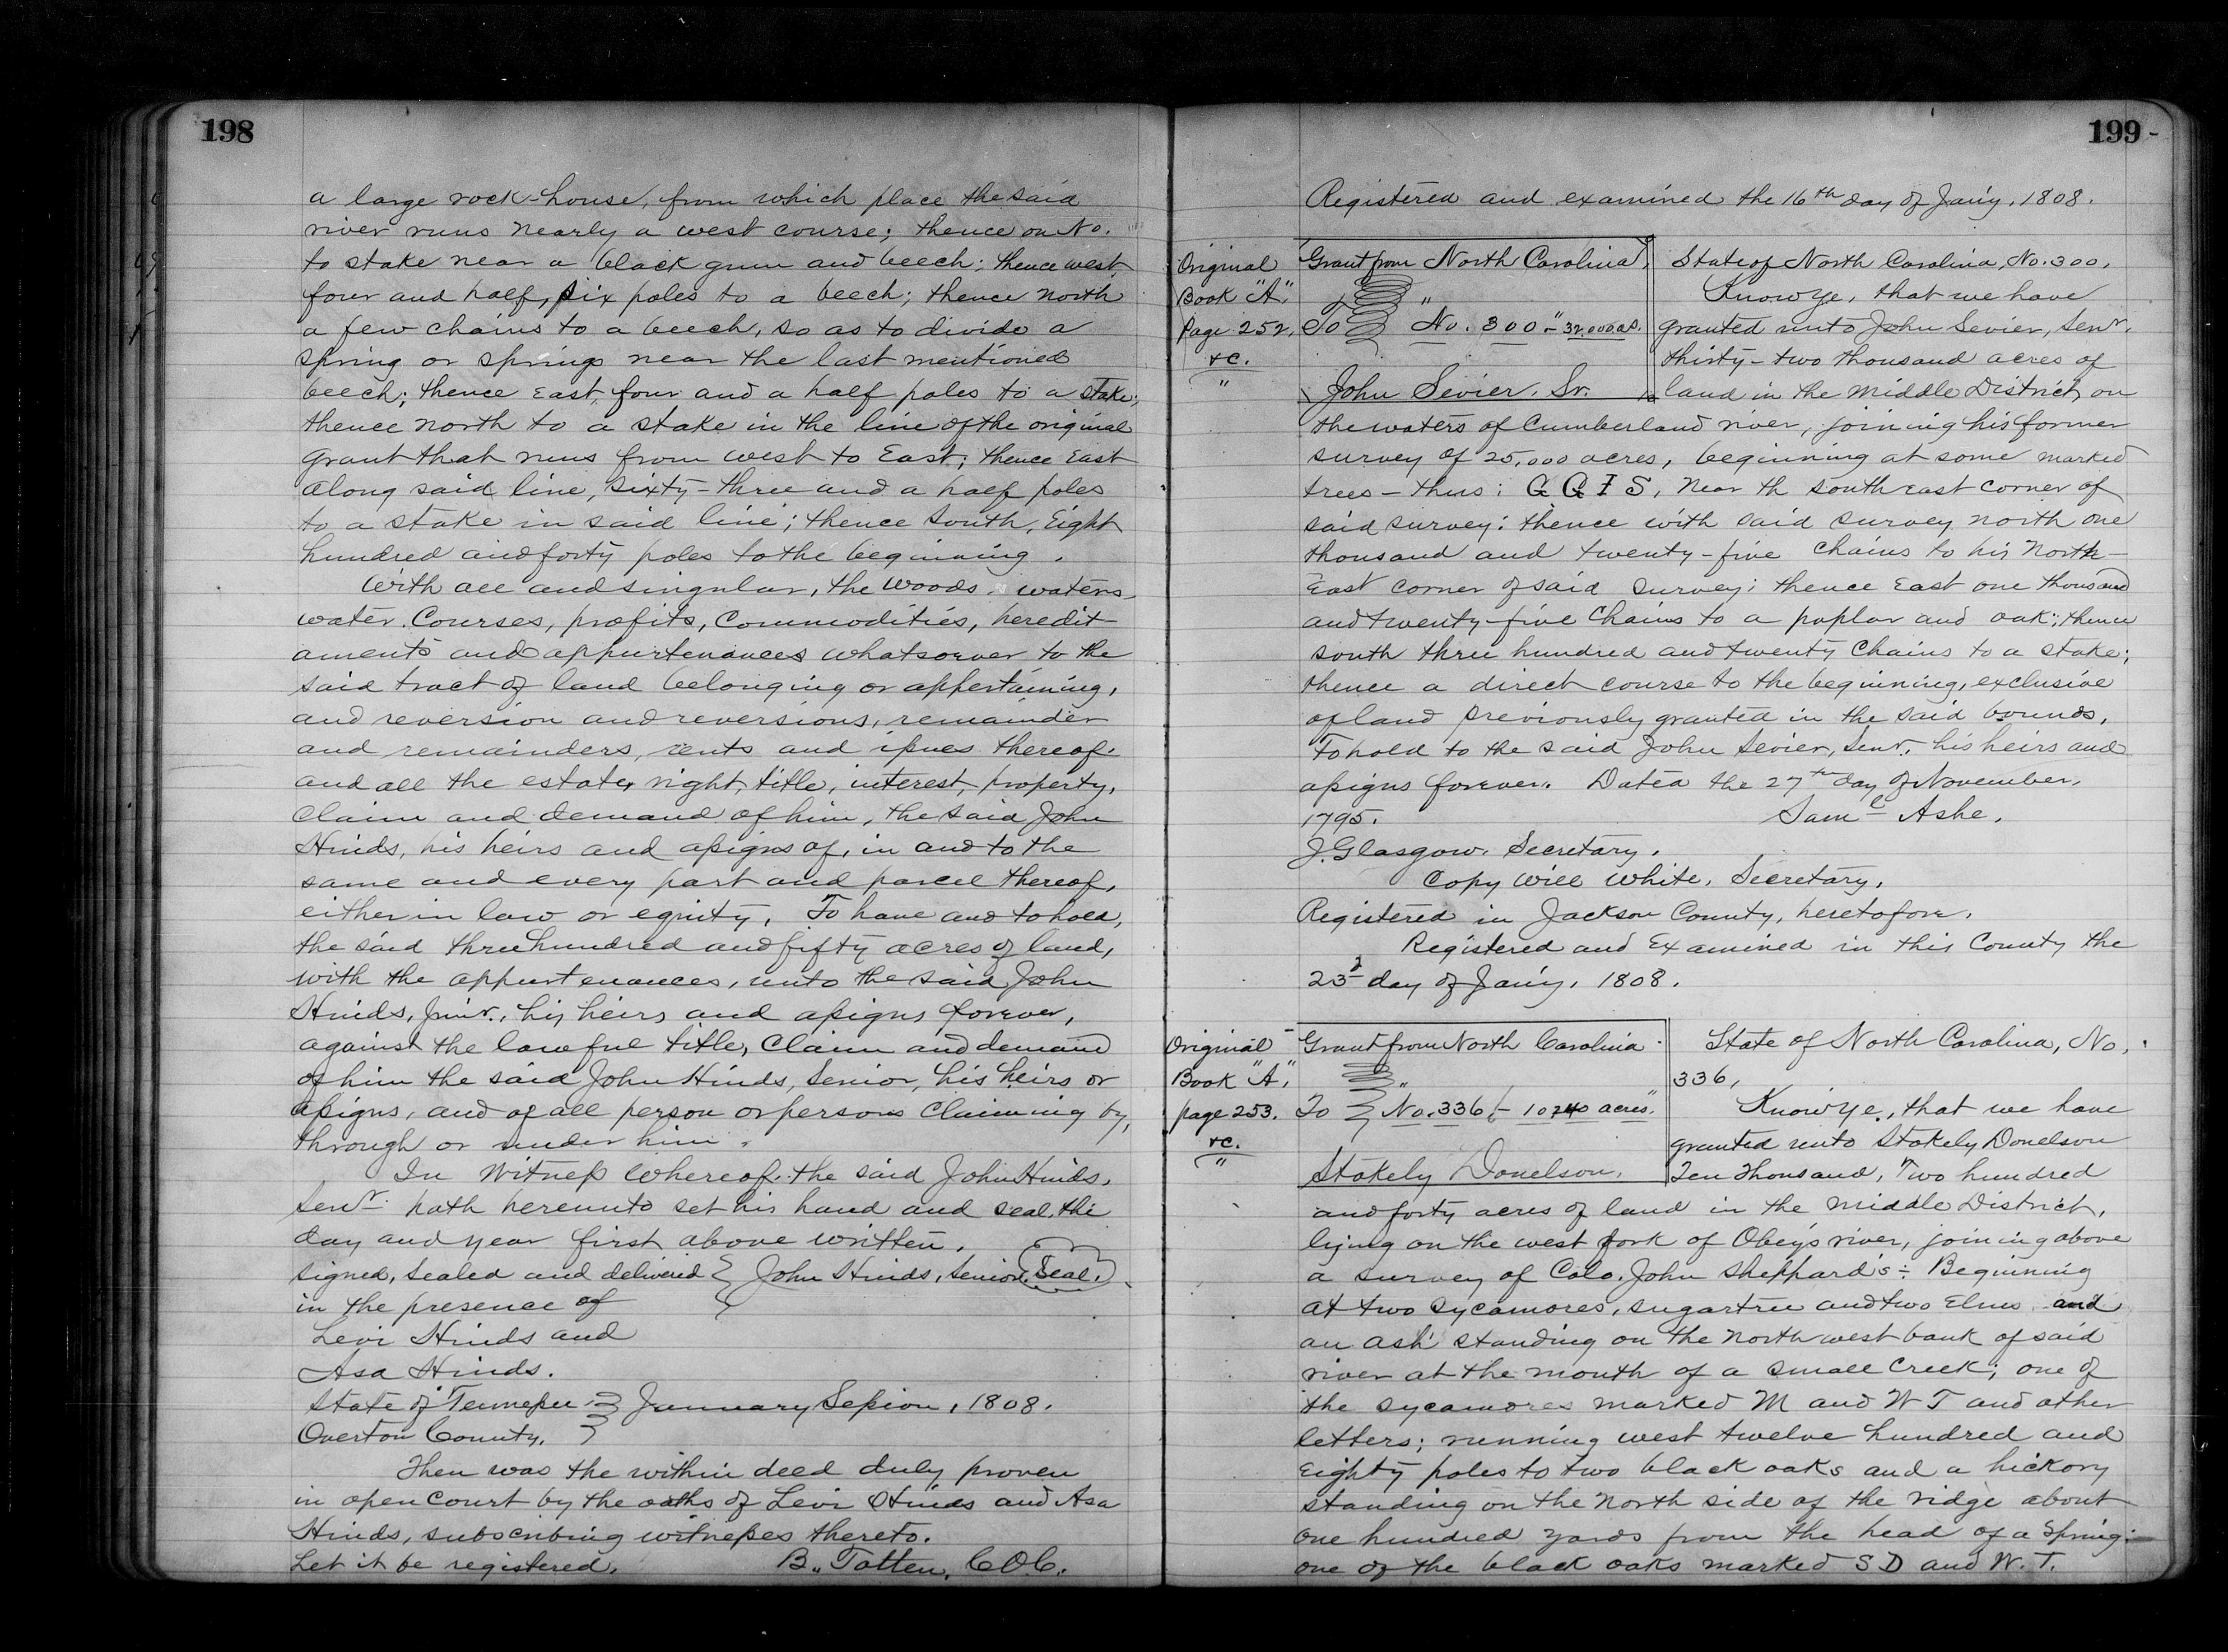 198
a large rock-house, from which place the said
river runs nearly a west course; thence on No.
to stake near a black gum and beech; thence west,
four and half, six poles to a beech; thence north
a few chains to a beech, so as to divide a
spring or springs near the last mentioned
beech; thence East, four and a half poles to a stake;
thence north to a stake in the line of the original
grant that runs from west to East; thence East
along said line, sixty-three and a half poles
to a stake in said line; thence South, Eight
hundred and forty poles to the beginning.
With all and singular, the woods, waters
water Courses, profits, Commodities, heredit-
aments and appurtenances whatsoever to the
said tract of land belonging or appertaining,
and reversion and reversions, remainder
and remainders, rents and issues thereof.
and all the estate, right, title, interest, property,
Claim and demand of him, the said John
Hinds, his heirs and assigns of, in and to the
same and every part and parcel thereof,
either in law or equity. To have and to hold,
the said three hundred and fifty acres of land,
with the appurtenances, unto the said John
Hinds, Junr., his heirs and assigns forever,
against the lawful title, Claim and demand
of him the said John Hinds, Senior, his heirs or
assigns, and of all person or persons Claiming by,
through or under him.
In Witness Whereof. the said John Hinds,
Senr. hath hereunto set his hand and seal, the
day and year first above written.
Signed, Sealed and delivered } John Hinds, Senior. Seal.
in the presence of
Levi Hinds and
Asa Hinds.
State of Tennessee } January Session, 1808.
Overton County. }
Then was the within deed duly proven
in open Court by the oaths of Levi Hinds and Asa
Hinds, subscribing witnesses thereto.
Let it be registered. B. Totten, C.O.C.
199-
Registered and examined the 16th day of Jan'y, 1808.
Original Book "A", Page 252, &c. "
Grant from North Carolina,
"
To No. 300 - 32,000 as.
John Sevier, Sr.
State of North Carolina, No. 300.
Know ye, that we have
granted unto John Sevier, Senr.
thirty-two thousand acres of
land in the Middle District, on
the waters of Cumberland river, joining his former
survey of 25,000 acres, beginning at some marked
trees - thus: G G I S, near th south east corner of
said survey: thence with said survey north one
thousand and twenty-five Chains to his North-
East corner of said survey; thence East one thousand
and twenty-five Chains to a poplar and oak; thence
south three hundred and twenty Chains to a stake;
thence a direct course to the beginning, exclusive
of land previously granted in the said bounds,
To hold to the said John Sevier, Senr. his heirs and
assigns forever. Dated the 27th day of November,
1795. Saml Ashe.
J. Glasgow. Secretary.
Copy Will White, Secretary.
Registered in Jackson County, heretofore.
Registered and Examined in this County the
23d day of Jan'y, 1808.
Original Book "A", page 253. &c. "
Grant from North Carolina
"
To No. 336, - 10240 acres"
Stokely Donelson.
State of North Carolina, No.
336,
Know ye, that we have
granted unto Stokely Donelson
Ten Thousand, Two hundred
and forty acres of land in the Middle District,
lying on the west fork of Obey's river, joining above
a survey of Colo. John Sheppard's: Beginning
at two sycamores, sugartree and two Elms and
an ash standing on the North west bank of said
river at the mouth of a small Creek; one of
the sycamores marked M and W T and other
letters; running west twelve hundred and
Eighty poles to two black oaks and a hickory
standing on the North side of the ridge about
one hundred yards from the head of a Spring:
one of the black oaks marked S D and W. T.